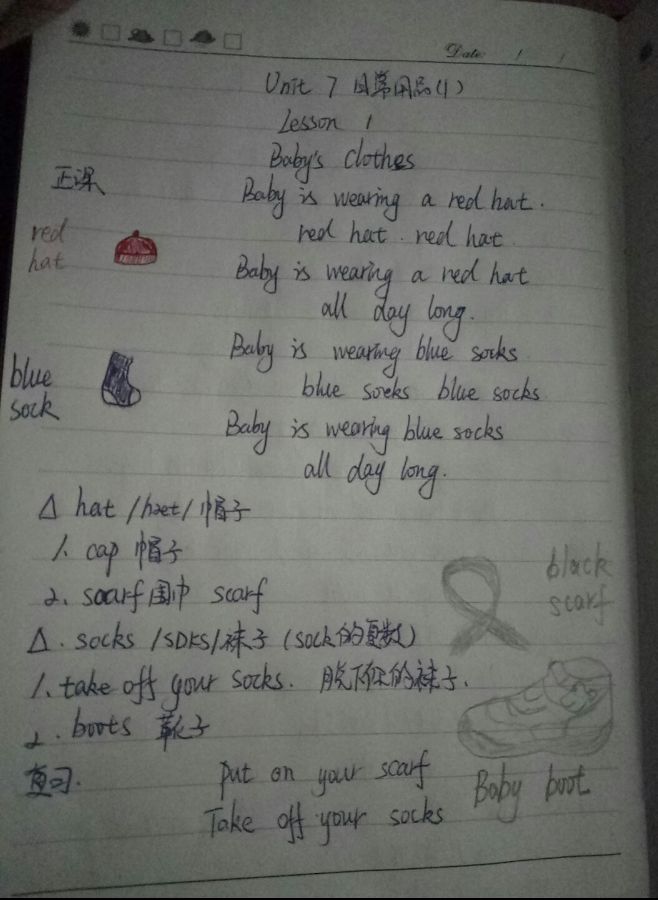 Date: / /
Unit 7 日常用品(1)
Lesson 1
Baby's clothes
正课
Baby is wearing a red hat.
red hat . red hat
red
hat
Baby is wearing a red hat
all day long.
Baby is wearing blue socks
blue
sock
blue socks blue socks
Baby is wearing blue socks
all day long.
△ hat /hæt/ 帽子
1. cap 帽子
2. scarf 围巾 scarf
black
scarf
△. socks /sɒks/ 袜子 (sock的复数)
1. take off your socks. 脱下你的袜子.
2. boots 靴子
复习.
put on your scarf
Baby boot
Take off your socks